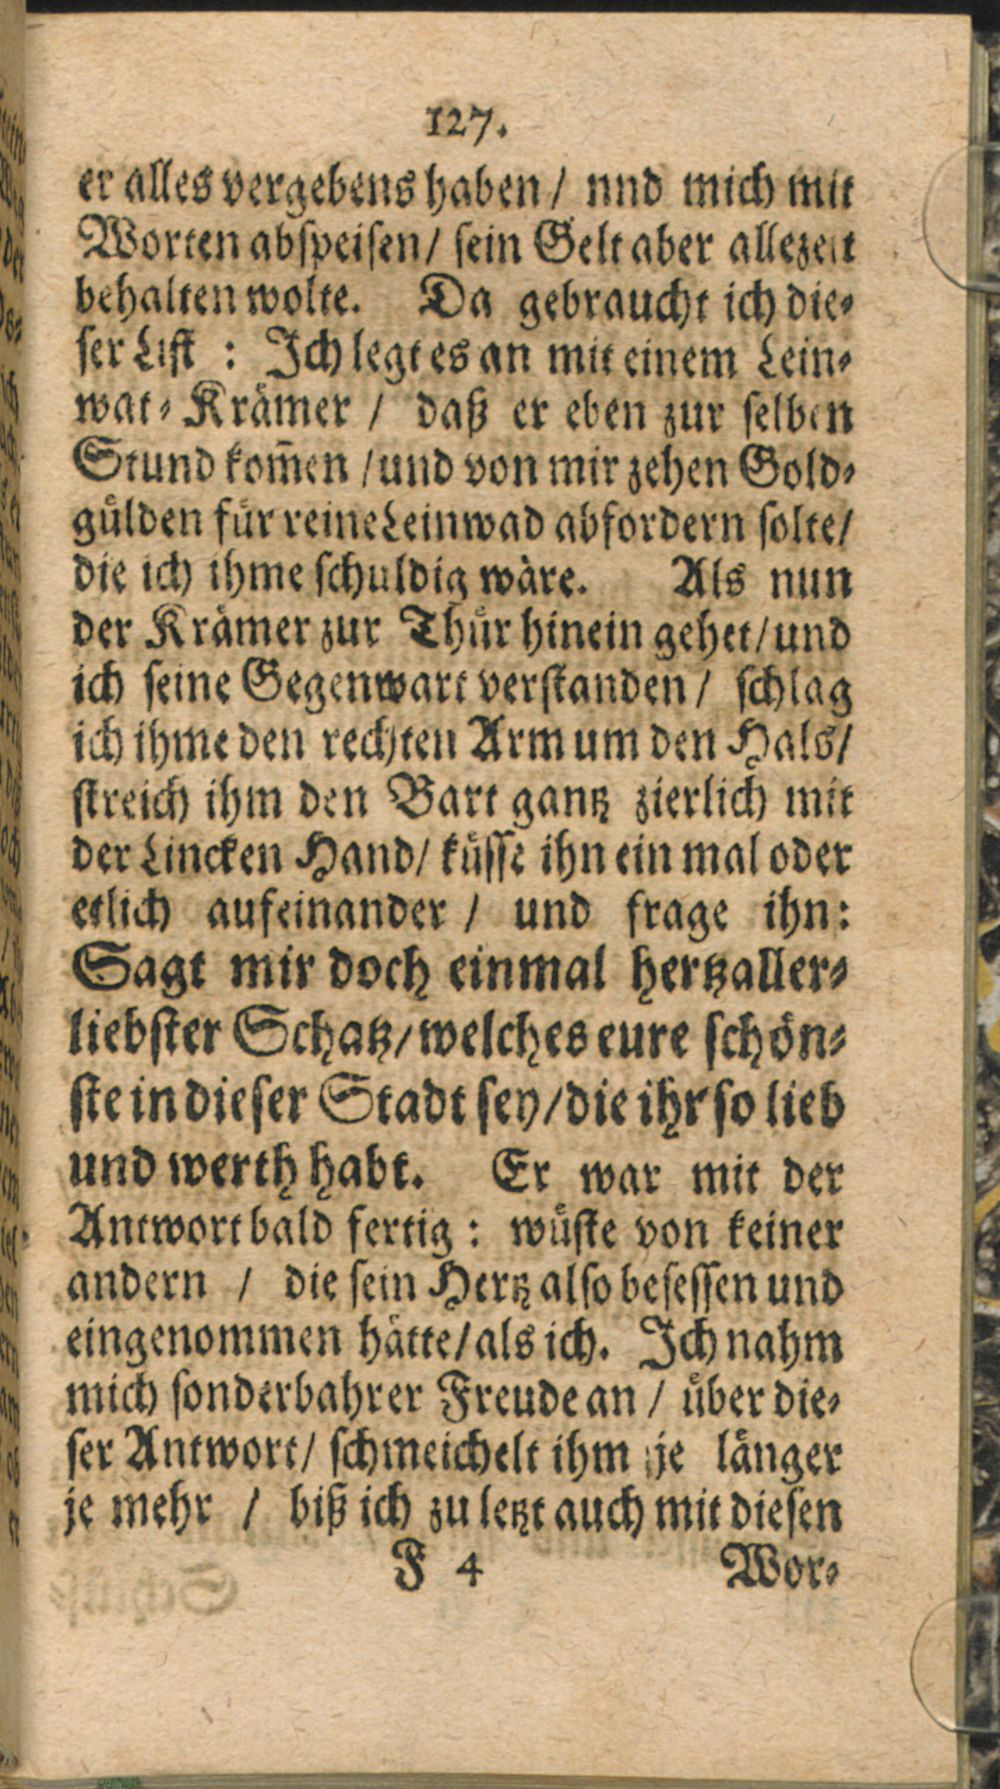 127.
er alles vergebens haben / nnd mich mit
Worten abspeisen / sein Gelt aber allezeit
behalten wolte. Da gebraucht ich die-
ser List : Ich legt es an mit einem Lein-
wat-Krämer / daß er eben zur selben
Stund kom̃en / und von mir zehen Gold-
gülden für reine Leinwad abfordern solte /
die ich ihme schuldig wäre. Als nun
der Krämer zur Thür hinein gehet / und
ich seine Gegenwart verstanden / schlag
ich ihme den rechten Arm um den Hals /
streich ihm den Bart gantz zierlich mit
der Lincken Hand / küsse ihn ein mal oder
etlich aufeinander / und frage ihn:
Sagt mir doch einmal hertzaller-
liebster Schatz / welches eure schön-
ste in dieser Stadt sey / die ihr so lieb
und werth habt. Er war mit der
Antwort bald fertig : wüste von keiner
andern / die sein Hertz also besessen und
eingenommen hätte / als ich. Ich nahm
mich sonderbahrer Freude an / über die-
ser Antwort / schmeichelt ihm je länger
je mehr / biß ich zu letzt auch mit diesen
F 4 Wor-